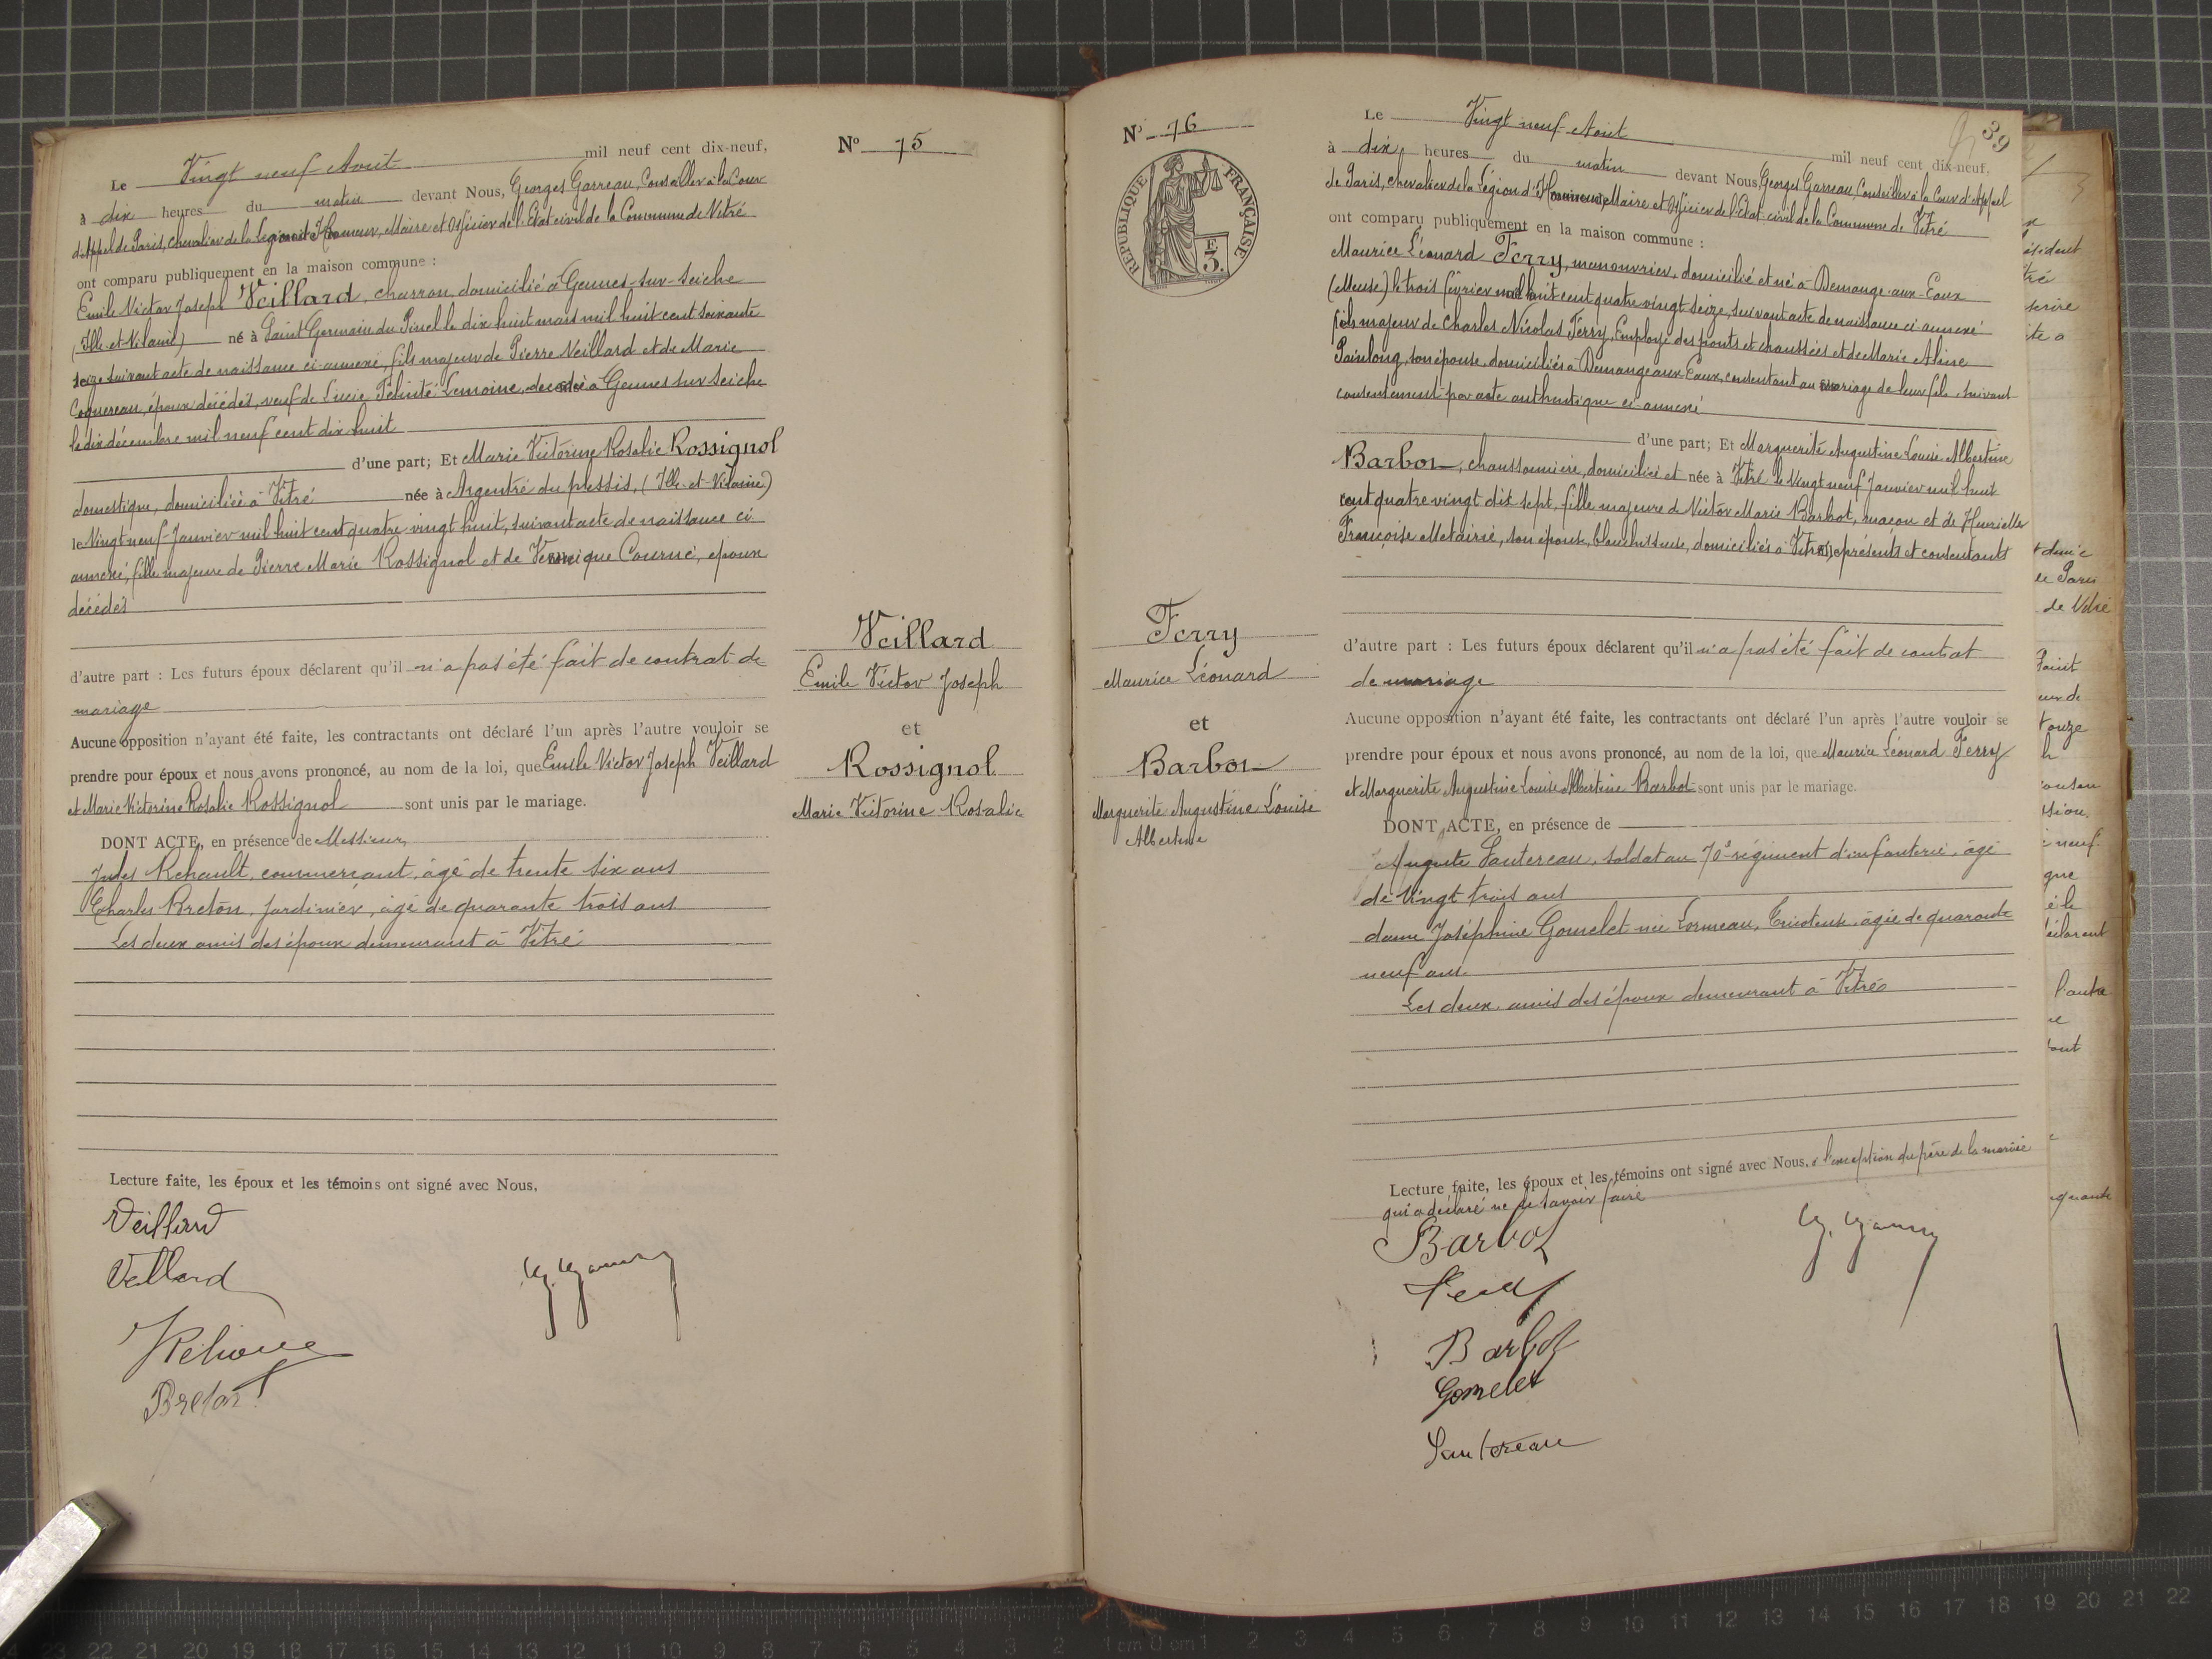 Le Vingt neuf Août mil neuf cent dix-neuf,
à dix heures du matin devant Nous, Georges Garreau, Conseiller à la Cour
d'Appel de Paris, chevalier de la Légion d'Honneur, Maire et Officier de l'Etat civil de la Commune de Vitré
ont comparu publiquement en la maison commune :
Emile Victor Joseph Veillard, charron, domicilié à Gennes-sur-Seiche
(Ille-et-Vilaine) né à Saint Germain du Pinel le dix huit mars mil huit cent soixante
seize suivant acte de naissance ci-annexé, fils majeur de Pierre Veillard et de Marie
Coquereau, époux décédés, veuf de Lucie Félicité Lemoine, décédée à Gennes sur Seiche
le dix décembre mil neuf cent dix huit
d'une part; Et Marie Victorine Rosalie Rossignol
domestique, domiciliée à Vitré née à Argentré du plessis, (Ille-et-Vilaine)
le Vingt neuf Janvier mil huit cent quatre vingt huit, suivant acte de naissance ci
annexé, fille majeure de Pierre Marie Rossignol et de Véronique Courné, époux
décédés
d'autre part : Les futurs époux déclarent qu'il n'a pas été fait de contrat de
mariage
Aucune opposition n'ayant été faite, les contractants ont déclaré l'un après l'autre vouloir se
prendre pour époux et nous avons prononcé, au nom de la loi, que Emile Victor Joseph Veillard
et Marie Victorine Rosalie Rossignol sont unis par le mariage.
DONT ACTE, en présence de Messieurs
Jules Rehault, commerçant, âgé de trente six ans
Charles Breton, Jardinier, âgé de quarante trois ans
Les deux amis des époux demeurant à Vitré
Lecture faite, les époux et les témoins ont signé avec Nous,
Veillard
Breton
Nº 75
Veillard
Emile Victor Joseph
et
Rossignol
Marie Victorine Rosalie
Nº 76
RÉPUBLIQUE FRANÇAISE
F.
3.
Ferry
Maurice Léonard
et
Barbot
Marguerite Augustine Louise
Albertine
39
Le Vingt neuf Août mil neuf cent dix-neuf,
à dix heures du matin devant Nous, Georges Garreau, Conseiller à la Cour d'Appel
de Paris, chevalier de la Légion d'Honneur, Maire et Officier de l'Etat-civil de la Commune de Vitré
ont comparu publiquement en la maison commune :
Maurice Léonard Ferry, manouvrier, domicilié et né à Demange-aux-Eaux
(Meuse) le trois février mil huit cent quatre vingt seize, suivant acte de naissance ci annexé
fils majeur de Charles Nicolas Ferry, Employé des ponts et chaussées et de Marie Aline
son épouse, domiciliés à Demange aux Eaux, consentant au mariage de leur fils, suivant
consentement par acte authentique ci annexé
d'une part; Et Marguerite Augustine Louise Albertine
Barbot, chaussonnière, domiciliée et née à Vitré le Vingt neuf Janvier mil huit
cent quatre vingt dix sept, fille majeure de Victor Marie Barbot, maçon et de Henriette
Françoise Métairie, son épouse, blanchisseuse, domiciliés à Vitré, présents et consentants
d'autre part : Les futurs époux déclarent qu'il n'a pas été fait de contrat
de mariage
Aucune opposition n'ayant été faite, les contractants ont déclaré l'un après l'autre vouloir se
prendre pour époux et nous avons prononcé, au nom de la loi, que Maurice Léonard Ferry
et Marguerite Augustine Louise Albertine Barbot sont unis par le mariage.
DONT ACTE, en présence de
Auguste Sautereau, soldat au 70e régiment d'infanterie, âgé
de Vingt trois ans
dame Joséphine Gomelet née Lormeau, Tricoteuse, âgée de quarante
neuf ans
Les deux amis des époux demeurant à Vitré
Lecture faite, les époux et les témoins ont signé avec Nous, à l'exception du père de la mariée
qui a déclaré ne le savoir faire
Barbot
Barbot
Gomelet
Sautereau
23 22 21 20 19 18 17 16 15 14 13 12 11 10 9 8 7 6 5 4 3 2 1 cm 0 cm 1 2 3 4 5 6 7 8 9 10 11 12 13 14 15 16 17 18 19 20 21 22